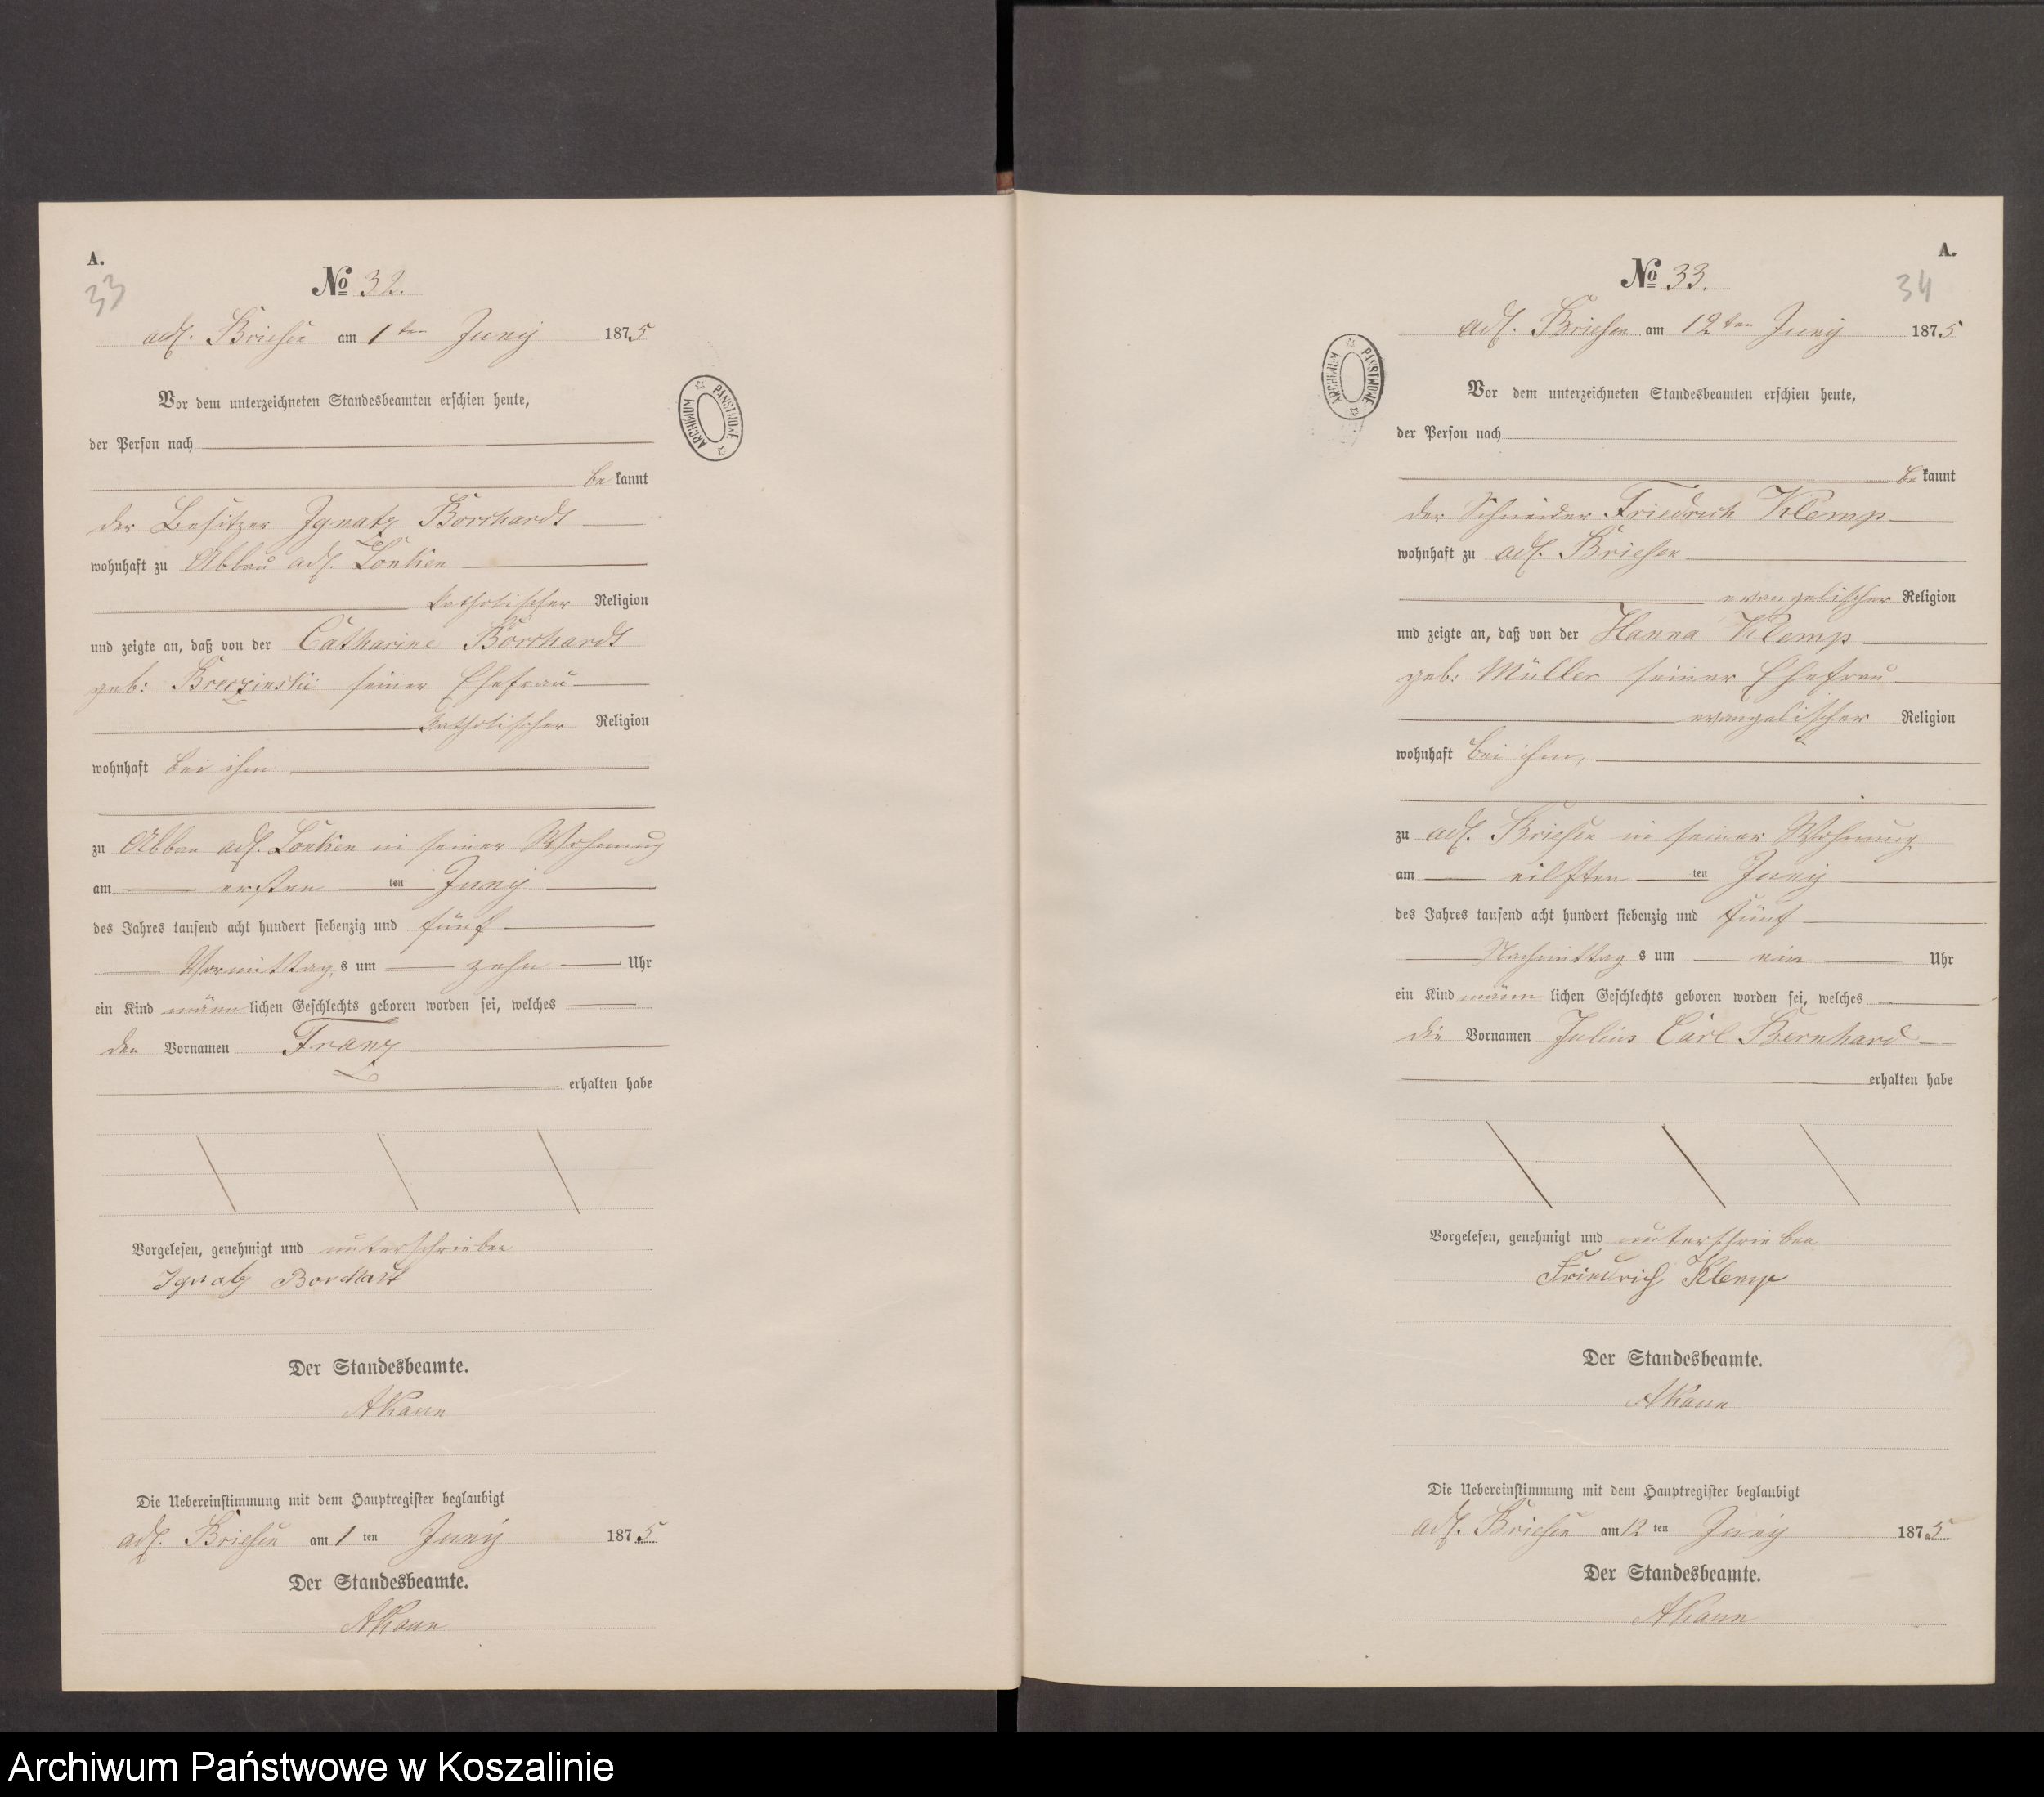 A.
33
No 32.
adl. Briesen am 1ten Juny 1875
Vor dem unterzeichneten Standesbeamten erschien heute,
der Person nach
be kannt
der Besitzer Ignatz Borchardt
wohnhaft zu Abbau adl. Lonken
katholischer Religion
und zeigte an, daß von der Catharine Borchardt
geb: seiner Ehefrau
katholischer Religion
wohnhaft bei ihm
zu Abbau adl. Lonken in seiner Wohnung
am ersten ten Juny
des Jahres tausend acht hundert siebenzig und fünf
Vormittag s um zehn Uhr
ein Kind männ lichen Geschlechts geboren worden sei, welches
den Vornamen Franz
erhalten habe
Vorgelesen, genehmigt und unterschrieben
Ignatz
Der Standesbeamte.
Die Uebereinstimmung mit dem Hauptregister beglaubigt
adl. Briesen am 1 ten Juny 1875
Der Standesbeamte.
ARCHIWUM PAŃSTWOWE
A.
34
No 33.
adl. Briesen am 12ten Juny 1875
Vor dem unterzeichneten Standesbeamten erschien heute,
der Person nach
be kannt
der Schneider Friedrich Klemp
wohnhaft zu adl. Briesen
evangelischer Religion
und zeigte an, daß von der Hanna Klemp
geb: Müller seiner Ehefrau
evangelischer Religion
wohnhaft bei ihm,
zu adl. Briesen in seiner Wohnung
am eilften ten Juny
des Jahres tausend acht hundert siebenzig und fünf
Nachmittag s um ein Uhr
ein Kind männ lichen Geschlechts geboren worden sei, welches
die Vornamen Julius Carl Bernhard
erhalten habe
Vorgelesen, genehmigt und unterschrieben
Friedrich Klemp
Der Standesbeamte.
Die Uebereinstimmung mit dem Hauptregister beglaubigt
adl. Briesen am 12 ten Juny 1875
Der Standesbeamte.
ARCHIWUM PAŃSTWOWE
Archiwum Państwowe w Koszalinie